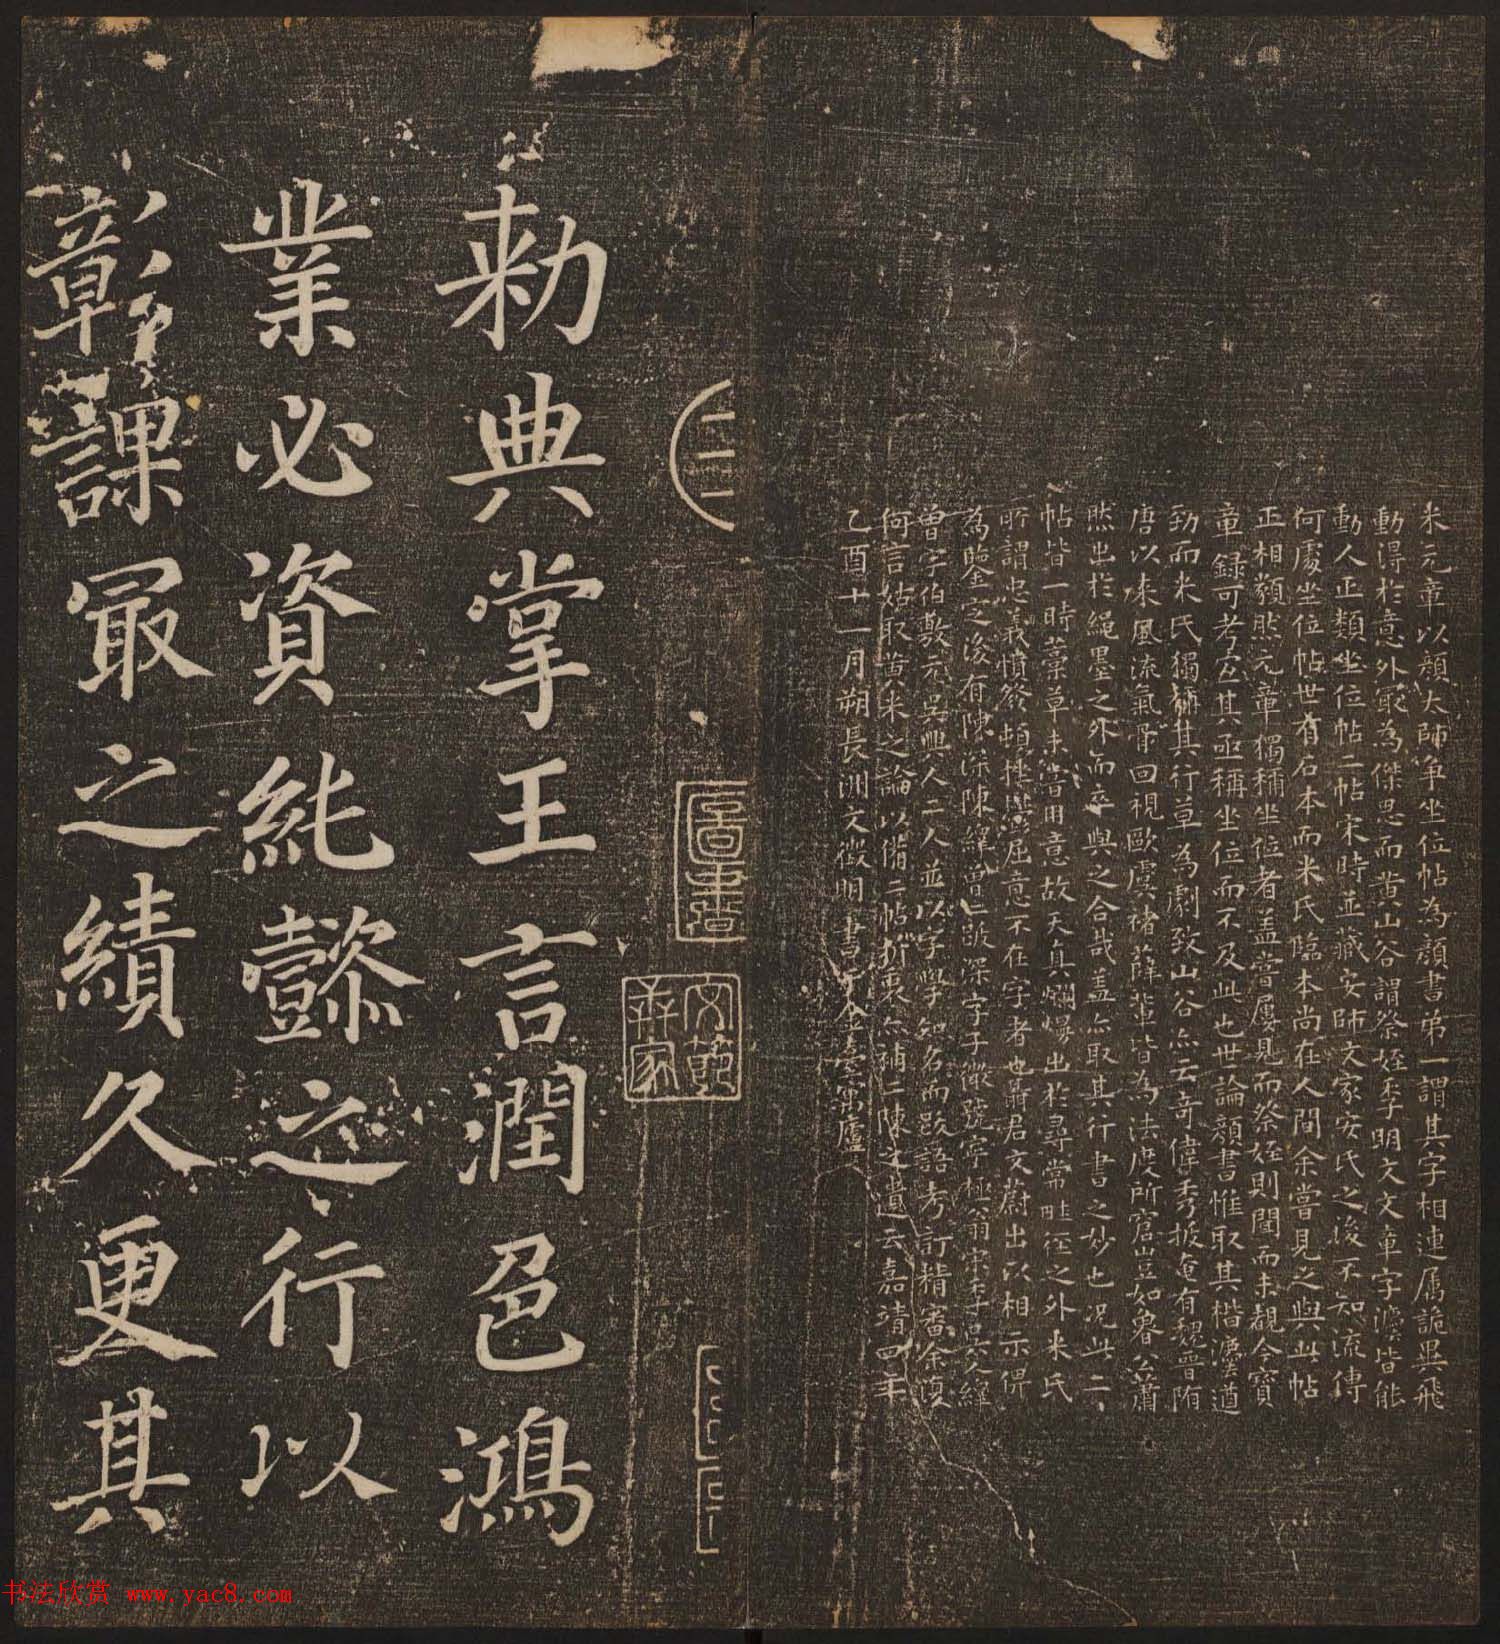 米元章以顏太師爭坐位帖為顏書第一謂其字相連屬詭異飛
動得於意外最為傑思而黃山谷謂祭姪季明文文章字灋皆能
動人正類坐位帖二帖宋時並藏安師文家安氏之後不知流傳
何處坐位帖世有石本而米氏臨本尚在人間余嘗見之與此帖
正相類然元章獨稱坐位者蓋嘗屢見而祭姪則聞而未覩今寶
章錄可考宜其亟稱坐位而不及此也世論顏書惟取其楷灋遒
勁而米氏獨稱其行草為劇致山谷亦云奇偉秀拔奄有魏晉隋
唐以來風流氣骨回視歐虞褚薛輩皆為法度所窘豈如魯公蕭
然出於繩墨之外而卒與之合哉蓋亦取其行書之妙也況此二
帖皆一時藁草未嘗用意故天真爛熳出於尋常畦徑之外米氏
所謂忠義憤發頓挫鬱屈意不在字者也聶君文蔚出以相示俾
為鑒定之後有陳深陳繹曾二跋深字子微號寧極翁宋季吳人繹
曾字伯敷元吳興人二人並以字學知名而跋語考訂精審余復
何言姑取黃米之論以備二帖折衷亦補二陳之遺云嘉靖四年
乙酉十一月朔長洲文徵明書于金臺寓廬
圖書
文範
家
勑典掌王言潤色鴻
業必資純懿之行以
彰課最之績久更其
书法欣赏 www.yac8.com